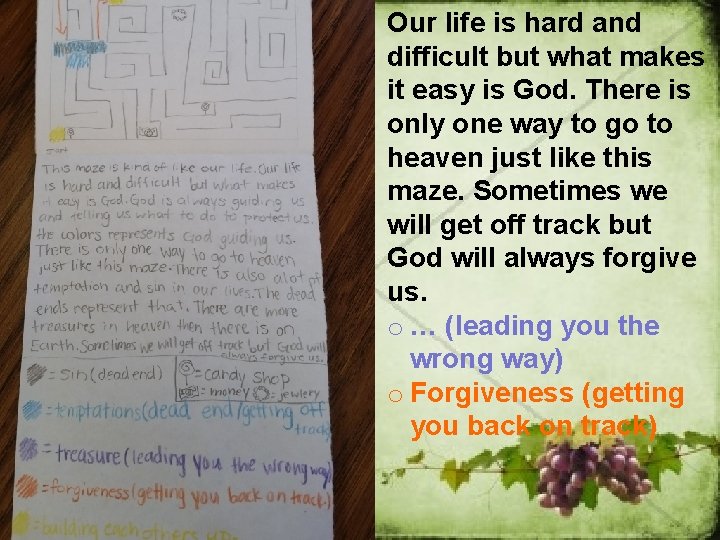 start
This maze is kind of like our life. Our life
is hard and difficult but what makes
it easy is God. God is always guiding us
and telling us what to do to protect us.
the colors represents God guiding us.
There is only one way to go to heaven
just like this maze. There is also alot of
temptation and sin in our lives. The dead
ends represent that. There are more
treasures in heaven then there is on
Earth. Sometimes we will get off track but God will
always forgive us.
= Sin (dead end)
= Candy shop
= money = jewlery
= temptations (dead end/getting off
track)
= treasure (leading you the wrong way)
= forgiveness (getting you back on track.)
= building each others up.
Our life is hard and
difficult but what makes
it easy is God. There is
only one way to go to
heaven just like this
maze. Sometimes we
will get off track but
God will always forgive
us.
o … (leading you the
wrong way)
o Forgiveness (getting
you back on track)